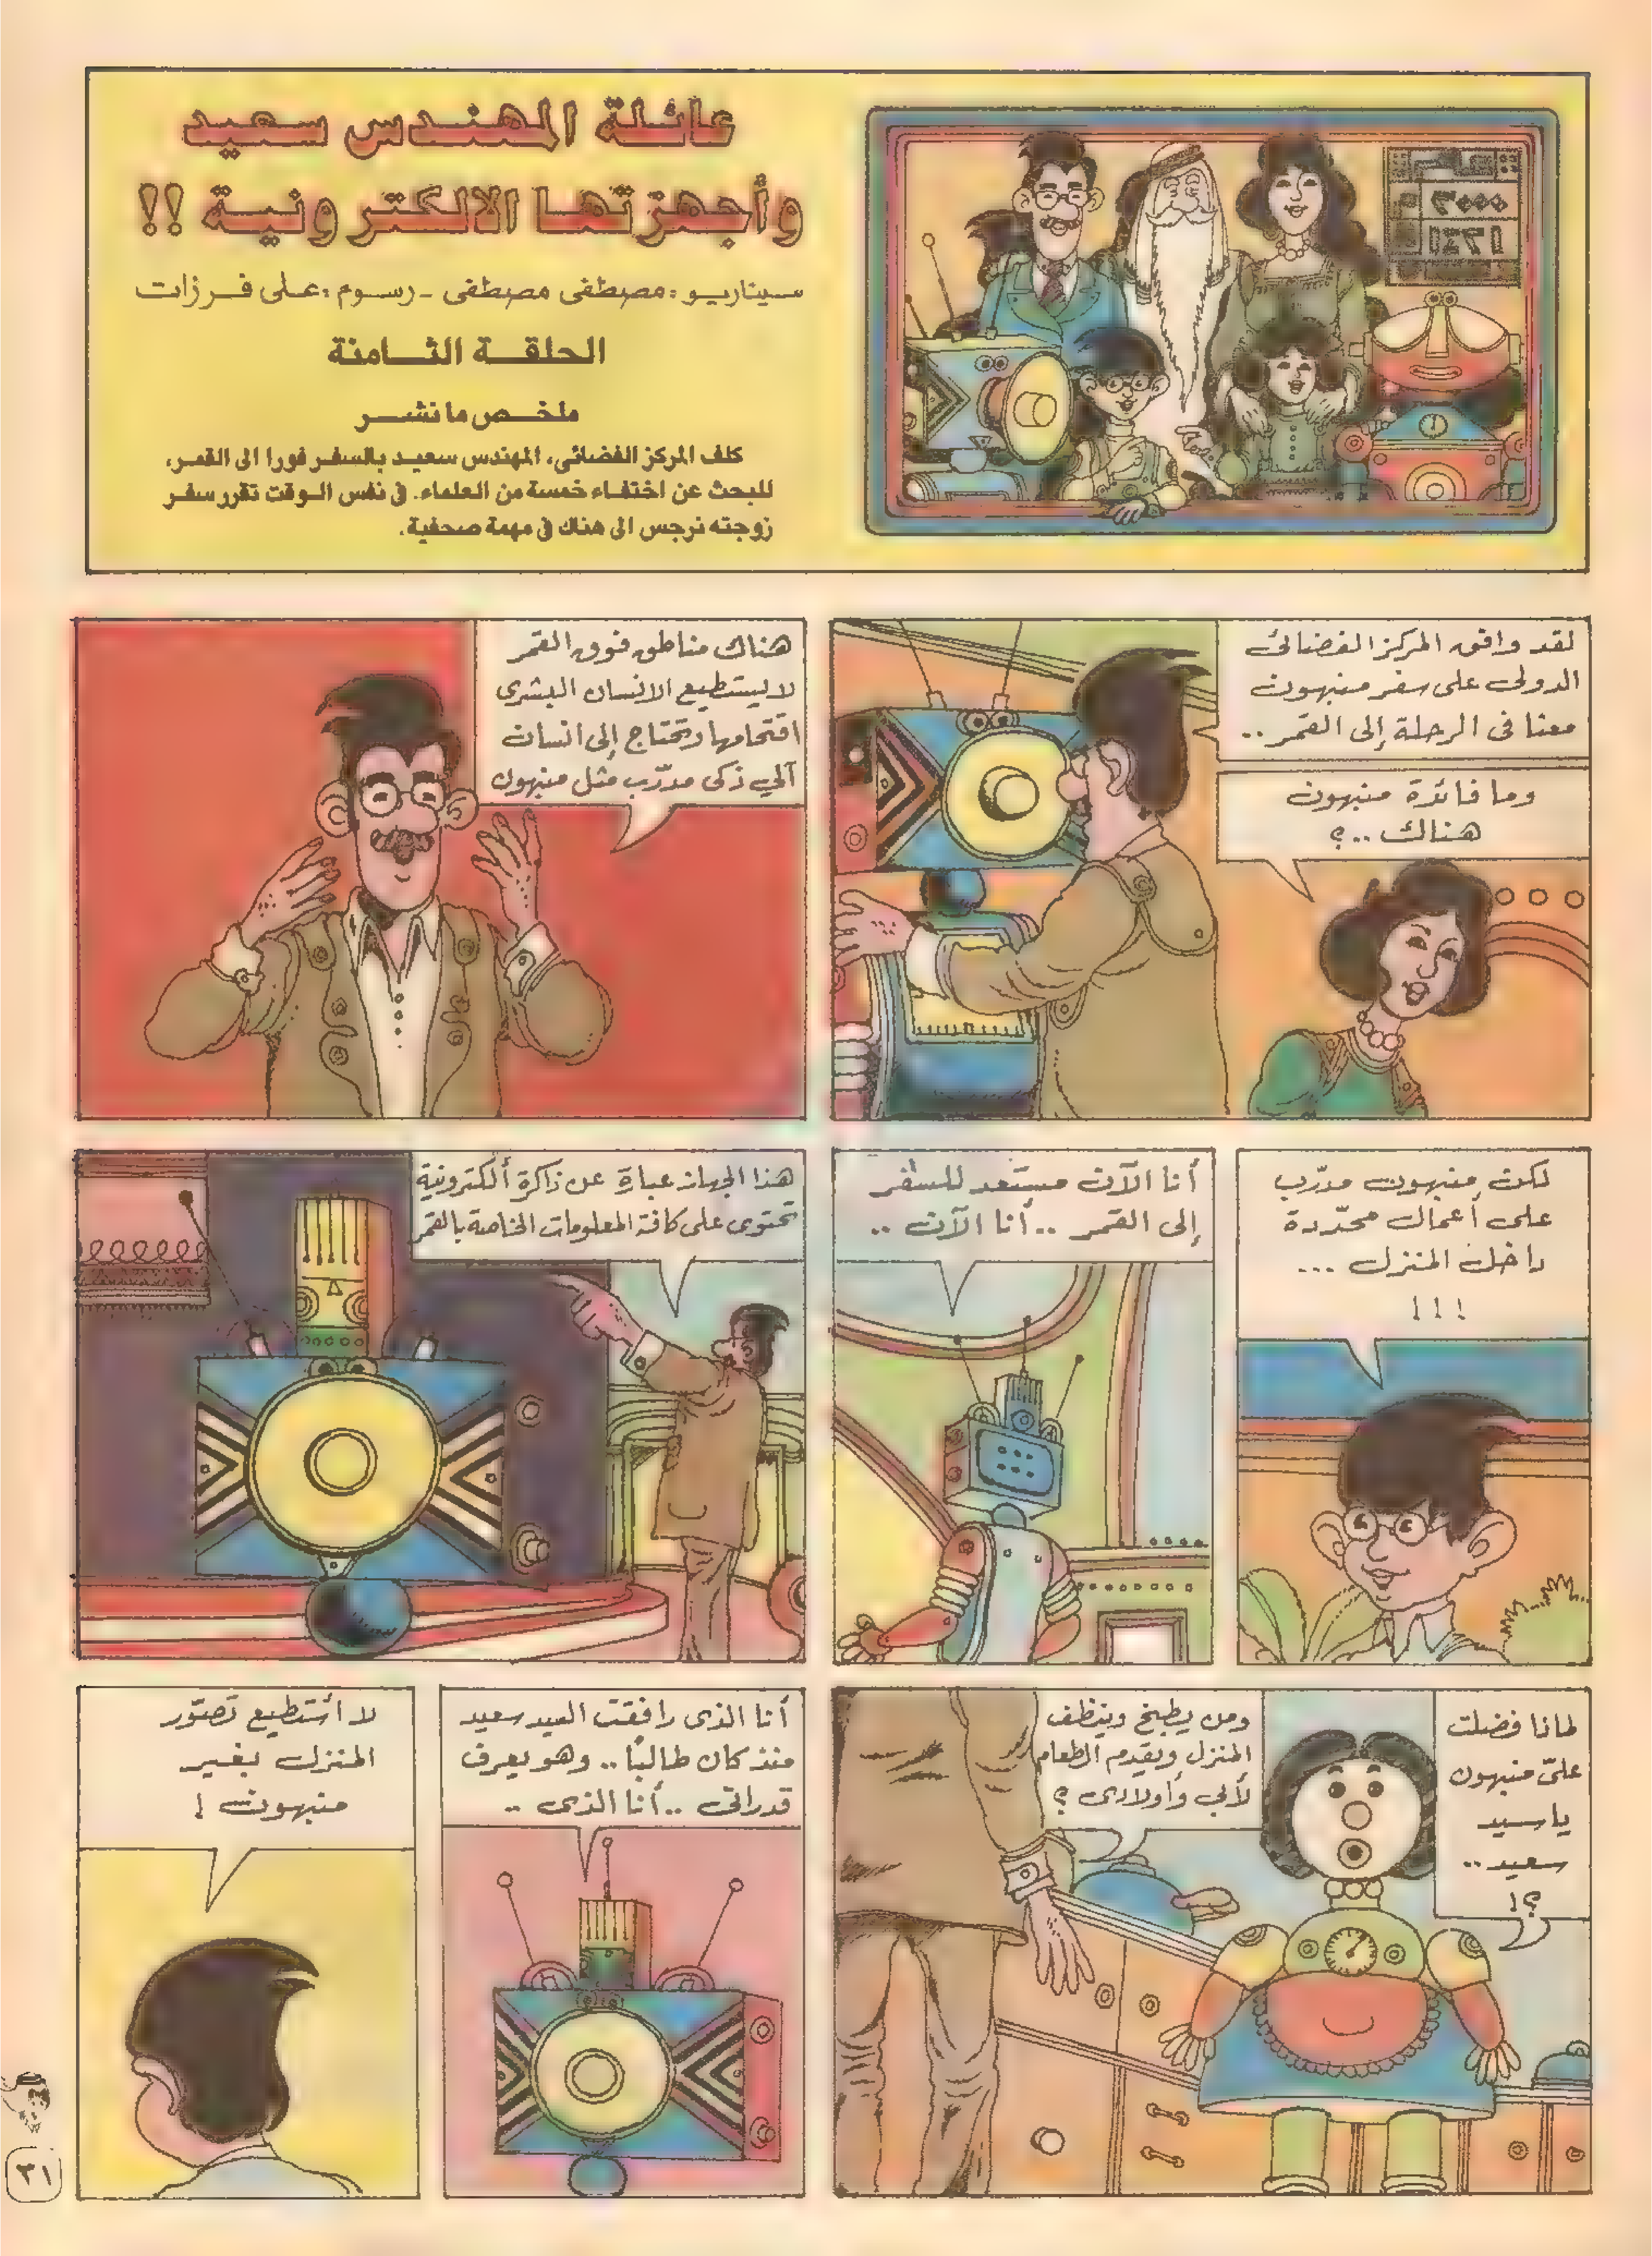 عائلة المهندس سعيد
وأجهزتها الالكترونية !!
سيناريو : مصطفى مصطفى - رسوم : على فرزات
الحلقة الثامنة
ملخص ما نشر
كلف المركز الفضائي، المهندس سعيد بالسفر فورا الى القمر،
للبحث عن اختفاء خمسة من العلماء. في نفس الوقت تقرر سفر
زوجته نرجس الى هناك في مهمة صحفية.
٣٠٠٠
١٤٢١
لقد وافق المركز الفضائى
الدولى على سفر منبهون
معنا فى الرحلة إلى القمر ..
وما فائدة منبهون
هناك ..؟
هناك مناطق فوق القمر
لا يستطيع الانسان البشرى
اقتحامها وتحتاج إلى انسان
آلي ذكى مدرّب مثل منبهون
لكن منبهون مدرّب
على أعمال محدّدة
داخل المنزل ...
!!!
أنا الآن مستعد للسفر
إلى القمر .. أنا الآن ..
هذا الجهاز عبارة عن ذاكرة ألكترونية
تحتوى على كافة المعلومات الخاصة بالقمر
لماذا فضلت
علىّ منبهون
يا سيد
سعيد ..
؟!
ومن يطبخ وينظف
المنزل ويقدم الطعام
لأبي وأولادى ؟
أنا الذى رافقت السيد سعيد
منذ كان طالبًا .. وهو يعرف
قدراتى .. أنا الذى ..
لا أستطيع تصوّر
المنزل بغير
منبهون !
٣١